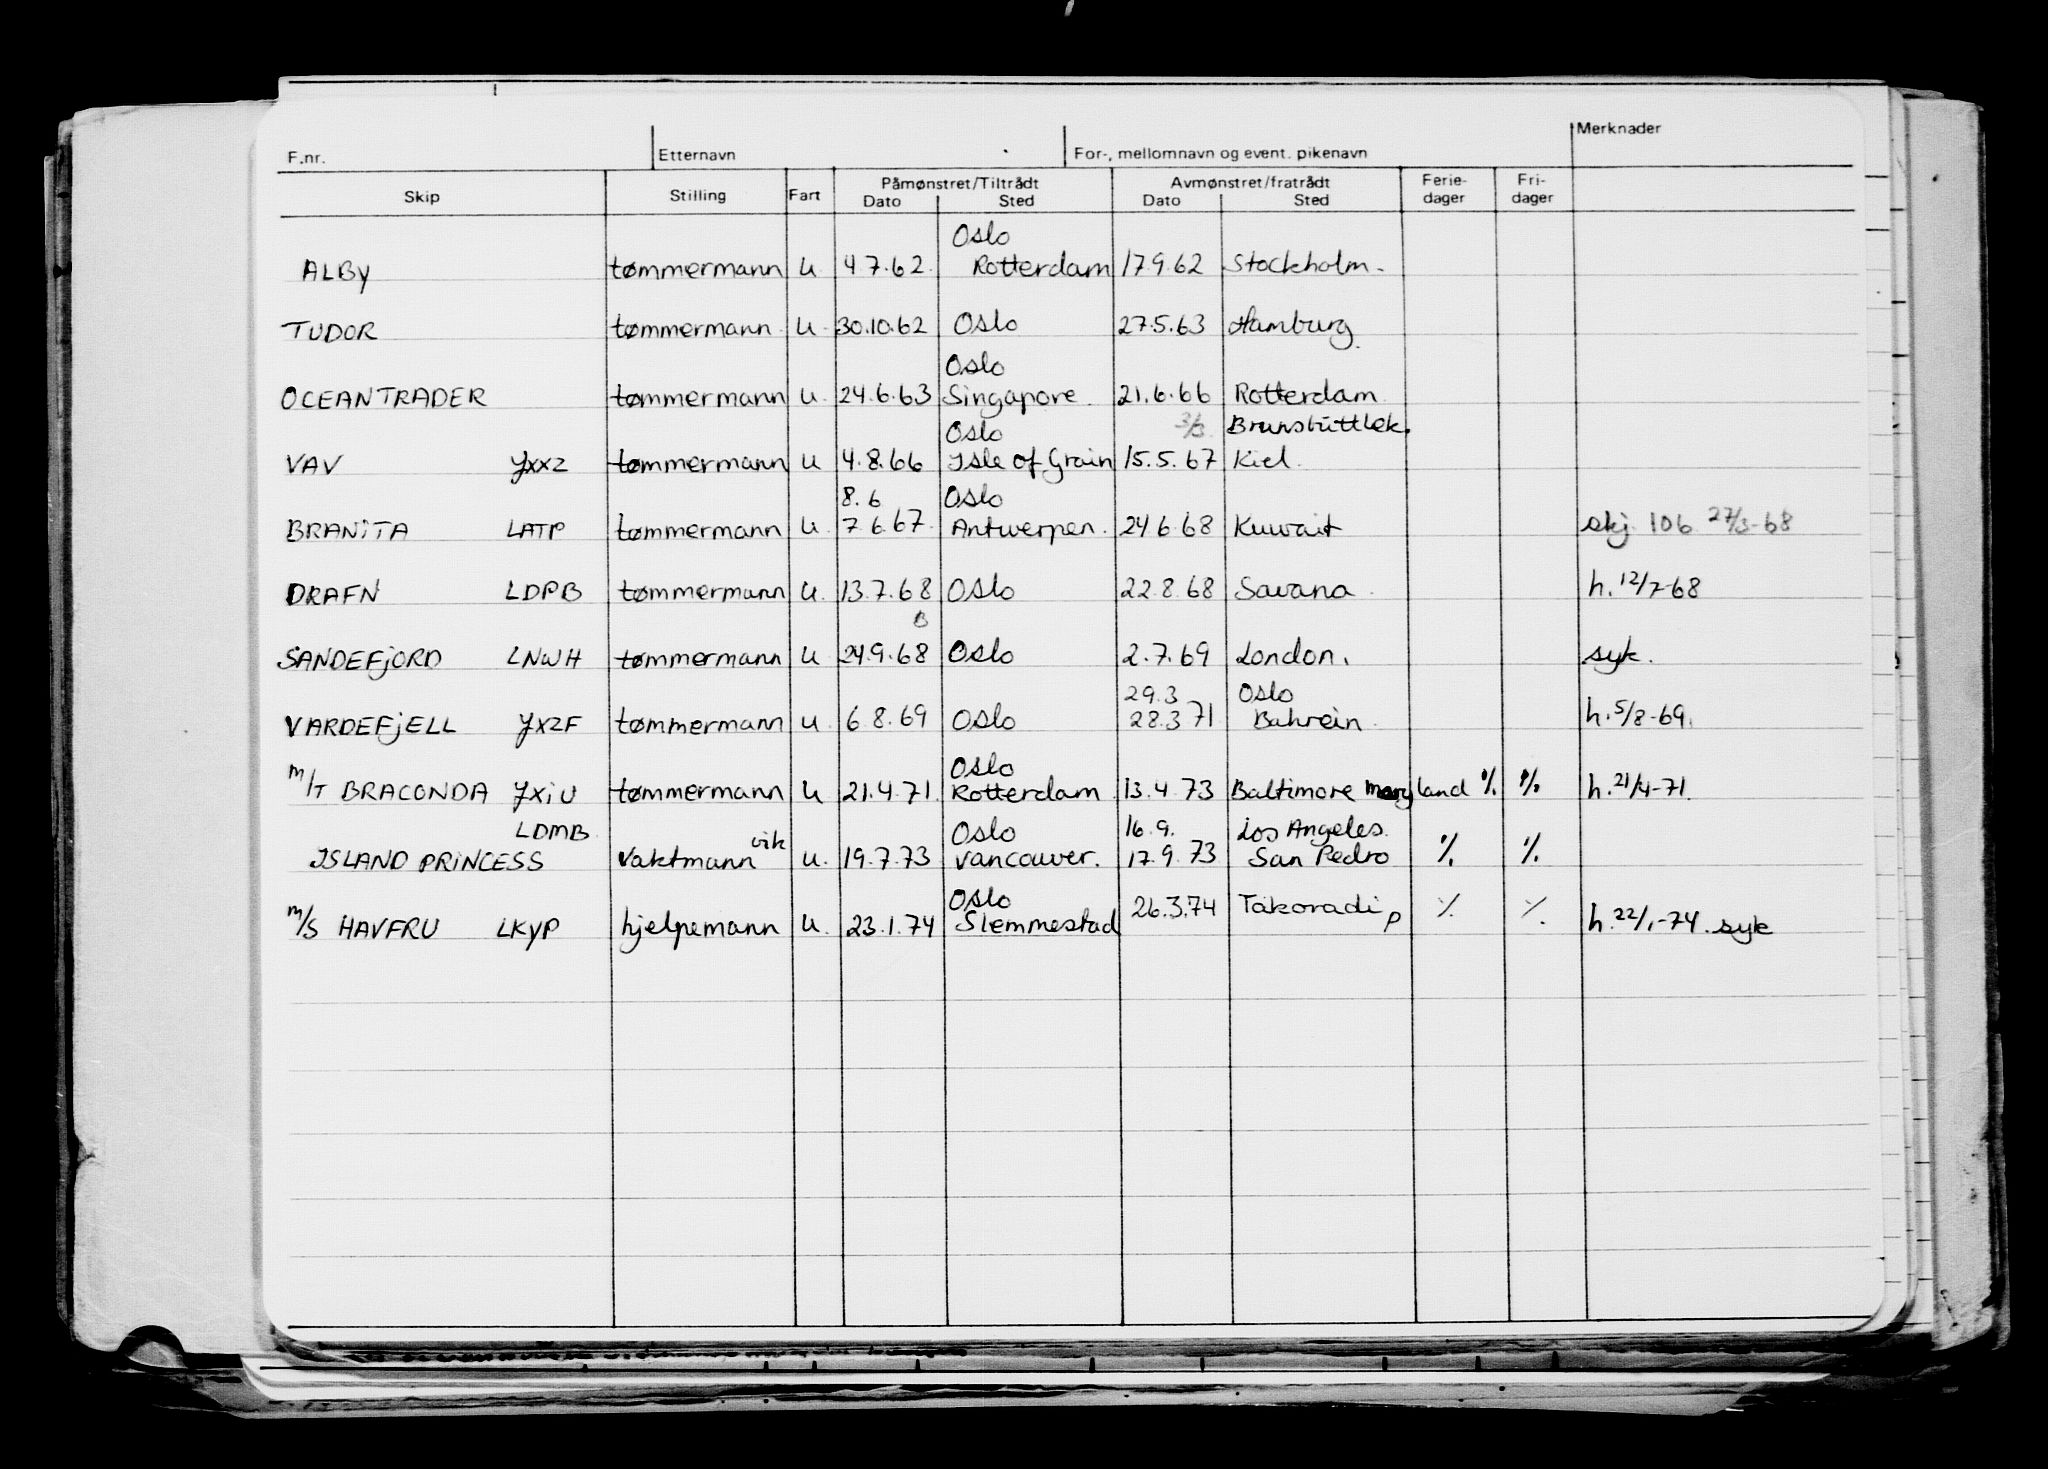 F.nr. Etternavn For-, mellomnavn og event. pikenavn Merknader
Skip Stilling Fart Påmønstret/Tiltrådt Avmønstret/fratrådt Ferie- Fri-
Dato Sted Dato Sted dager dager
Oslo
ALBY tømmermann u 4.7.62. Rotterdam 17.9.62 Stockholm.
TUDOR tømmermann u. 30.10.62 Oslo 27.5.63 Hamburg.
Oslo
OCEANTRADER tømmermann u. 24.6.63 Singapore. 21.6.66 Rotterdam
Oslo 3/3.
VAV JXXZ tømmermann u 4.8.66 Isle of Grain 15.5.67 Kiel.
8.6 Oslo
BRANITA LATP tømmermann u. 7.6.67. Antwerpen. 24.6.68 Kuwait skj. 106 27/3-68
DRAFN LDPB tømmermann u. 13.7.68 Oslo 22.8.68 Savana. h. 12/7-68
SANDEFJORD LNWH tømmermann u 24.9.68 Oslo 2.7.69 London. syk.
29.3 Oslo
VARDEFJELL JXZF tømmermann u. 6.8.69 Oslo 28.3.71 Bahrein. h. 5/8-69.
Oslo
M/T BRACONDA JXIU tømmermann u 21.4.71. Rotterdam 13.4.73 Baltimore Maryland % % h. 21/4-71.
LDMB vik Oslo 16.9. Los Angeles.
ISLAND PRINCESS Vaktmann u. 19.7.73 Vancouver. 17.9.73 San Pedro % %
Oslo
M/S HAVFRU LKYP hjelpemann u. 23.1.74 Slemmestad 26.3.74 Takoradi p % % h. 22/1-74. syk